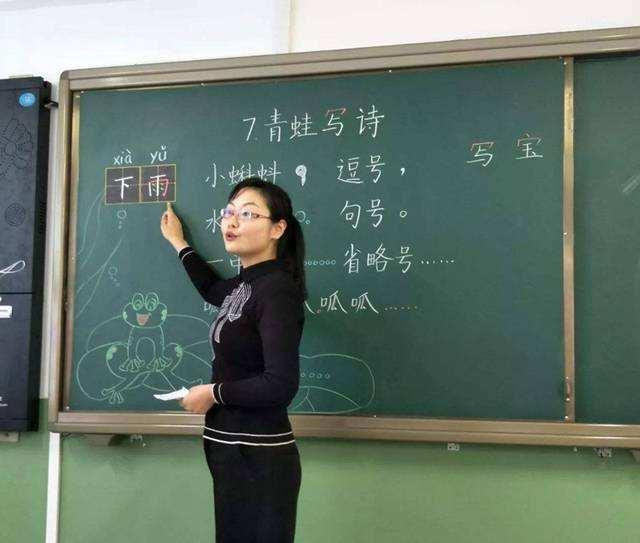 7.青蛙写诗
xià yǔ
下雨
写 宝
小蝌蚪 , 逗号，
水 。 句号。
一串 …… 省略号……
呱 呱呱……